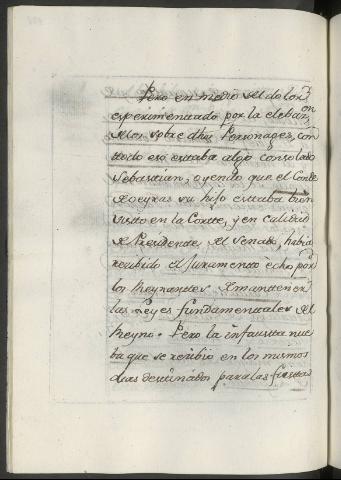 Pero en medio del dolor
esperimentado por la eleba.on
de los sobre dhos Personages, con
todo eso estaba algo consolado
Sebastian, oyendo que el Conde
de Oeyras su hijo estaba bien
visto en la Corte, y en calidad
de Presidente del Senado, habia
recibido el juramento echo por
los Reynantes de mantener
las Leyes fundamentales del
Reyno. Pero la infausta nue
ba que se recibio en los mismos
dias destinados para las fiestas